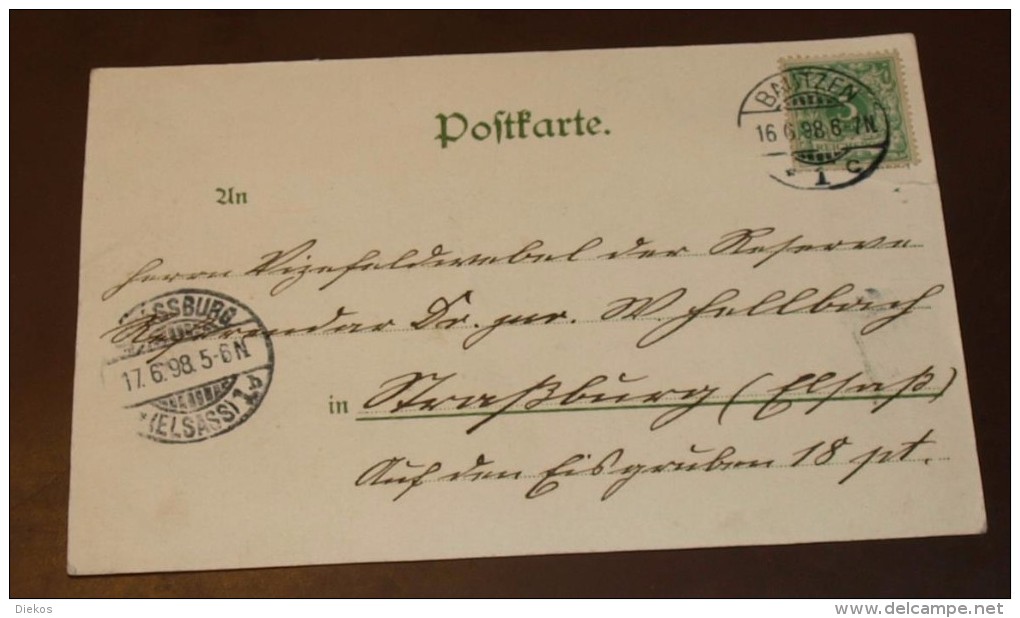 Postkarte.
BAUTZEN
16 6.98.6-7N.
1 c
An
Herrn Vizefeldwebel der Reserve
Referendar Dr. jur. W. Hellbach
in Straßburg (Elsaß)
Auf den Eisgruben 18 pt.
SSBURG
17.6.98.5-6N
(ELSASS) 1
Diekos
www.delcampe.net